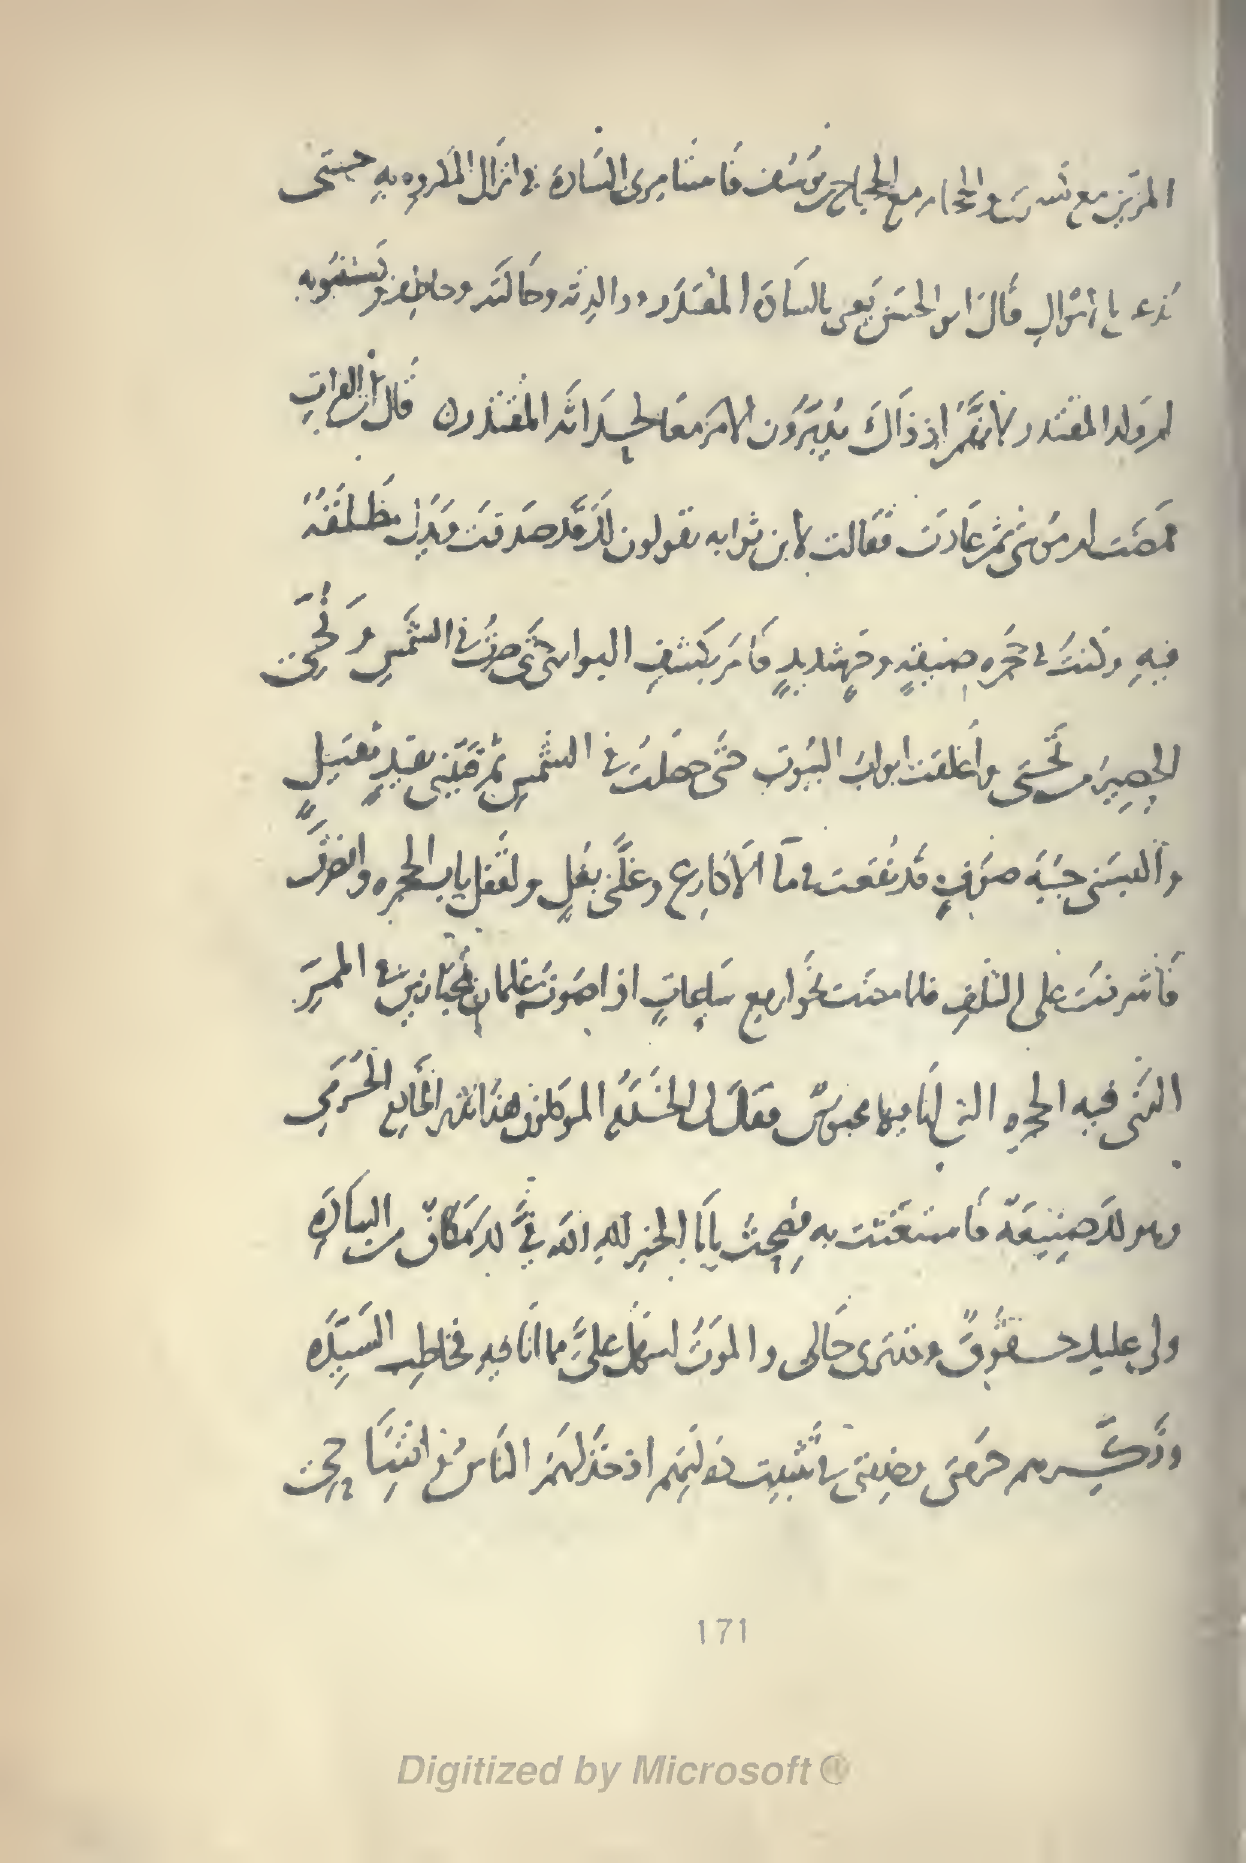 المزين مع والحجام مع الحجاج بن يوسف فاستامرى السادة في انزال المكروه به حتى
قال ابو الحسن يعني بالسادة المقتدر ووالدته وخالته وخاطف ودستنبويه
ام ولد المقتدر لانهم اذ ذاك يدبرون الامر معا لحداثة المقتدر قال ابن الفرات
فمضت ام موسى ثم عادت فقالت لابن ثوابه يقولون لك قد صدقت ويدك مطلقة
فيه وكنت في حجره ضيقة وحر شديد فامر بكشف البواري حتى صرت في الشمس ونحى
الحصير من تحتي واغلقت ابواب البيوت حتى حصلت في الشمس ثم قيدني بقيد ثقيل
والبسني جبة صوف قد نقعت في ما الاكارع وغلني بغل وقفل باب الحجره وانصرف
فاشرفت على التلف فلما مضت نحو اربع ساعات اذا صوت غلمان مجتازين في الممر
الذي فيه الحجره التي انا فيها محبوس فقال لي الخدم الموكلون هذا بدر الحرمي
وهو لك صنيعة فاستغثت به وصحت يا با الخير لله الله في لك مكان من السادة
ولي عليك حقوق وقد ترى حالي والموت اسهل علي مما انا فيه فخاطب السادة
وذكرهم حرمتي وخدمتي في تثبيت دولتهم اذ خذلهم الناس
171
Digitized by Microsoft ®